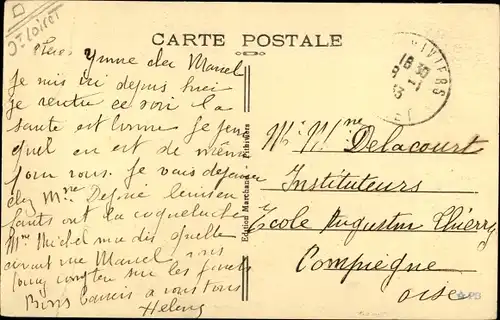 Dt Loiret
CARTE POSTALE
Chers Yvonne et Marcel
Je suis ici depuis hier
je rentre ce soir la
santé est bonne Je pense
quel en est de même
pour vous. Je vais déjeuner
chez Mme les
enfants ont la coqueluche
Mme Michel ma dit quelle
avait vue Marcel
compter sur les jours
Bons baisers a vous tous
Helene
Edition Marchand - Pithiviers
PITHIVIERS
18 30
8 - 1
LOIRET
Mr Mme Delacourt
Instituteurs
Ecole Augustin Thierry
Compiègne
Oise